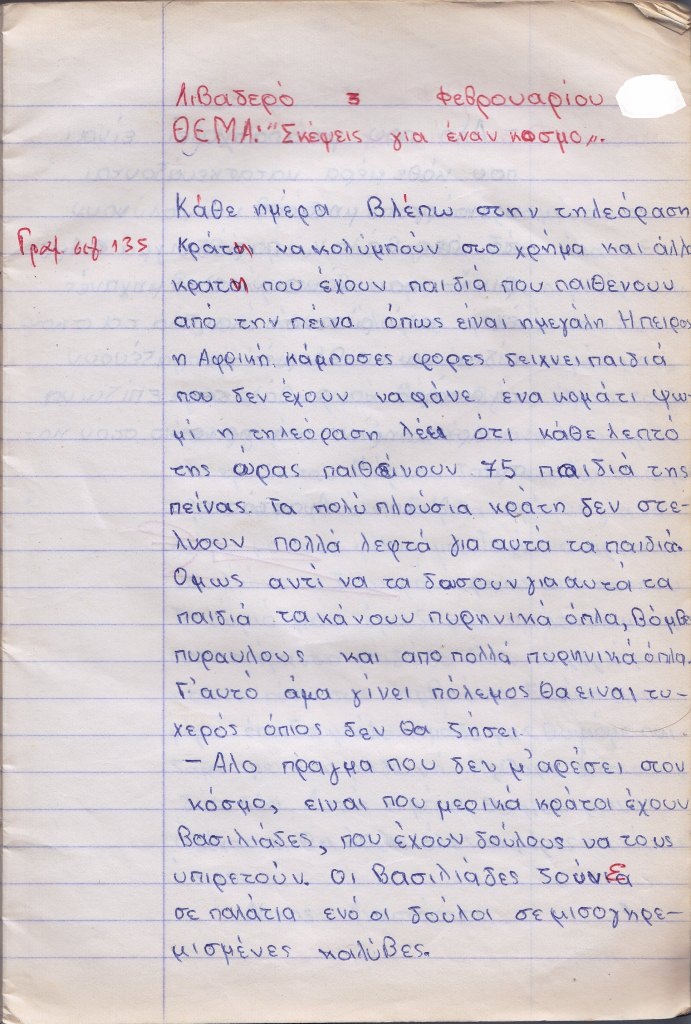 Λιβαδερό 3 Φεβρουαρίου
ΘΕΜΑ: "Σκέψεις για έναν κοσμο".
Κάθε ημέρα Βλέπω στην τηλεόραση
Γραμ σελ 135
Κράτη να κολυμπούν στο χρήμα και άλλα
κρατη που έχουν παιδιά που παιθενουν
από την πείνα όπως είναι ημεγάλη Ηπειρος
η Αφρική. κάμποσες φορες δειχνει παιδιά
που δεν έχουν να φάνε ένα κομάτι ψω-
μί η τηλεόραση λέει ότι κάθε λεπτό
της ώρας παιθαίνουν 75 παιδιά της
πείνας. Τα πολύ πλούσια κράτη δεν στέ-
λνουν πολλά λεφτά για αυτά τα παιδιά.
Ομως αντί να τα δωσουν για αυτά τα
παιδιά τα κάνουν πυρηνικά όπλα, Βόμβες
πυραυλους και απο πολλά πυρηνικά όπλα.
Γ'αυτό άμα γίνει πόλεμος θα ειναι τυ-
χερός όπιος δεν θα ζήσει.
– Αλο πραγμα που δεν μ'αρέσει στον
κόσμο, ειναι που μερικά κράτοι έχουν
Βασιλιάδες, που έχουν δούλους να τους
υπιρετούν. Οι Βασιλιάδες ζούνε
σε παλάτια ενό οι δούλοι σε μισογηρε-
μισμένες καλύβες.